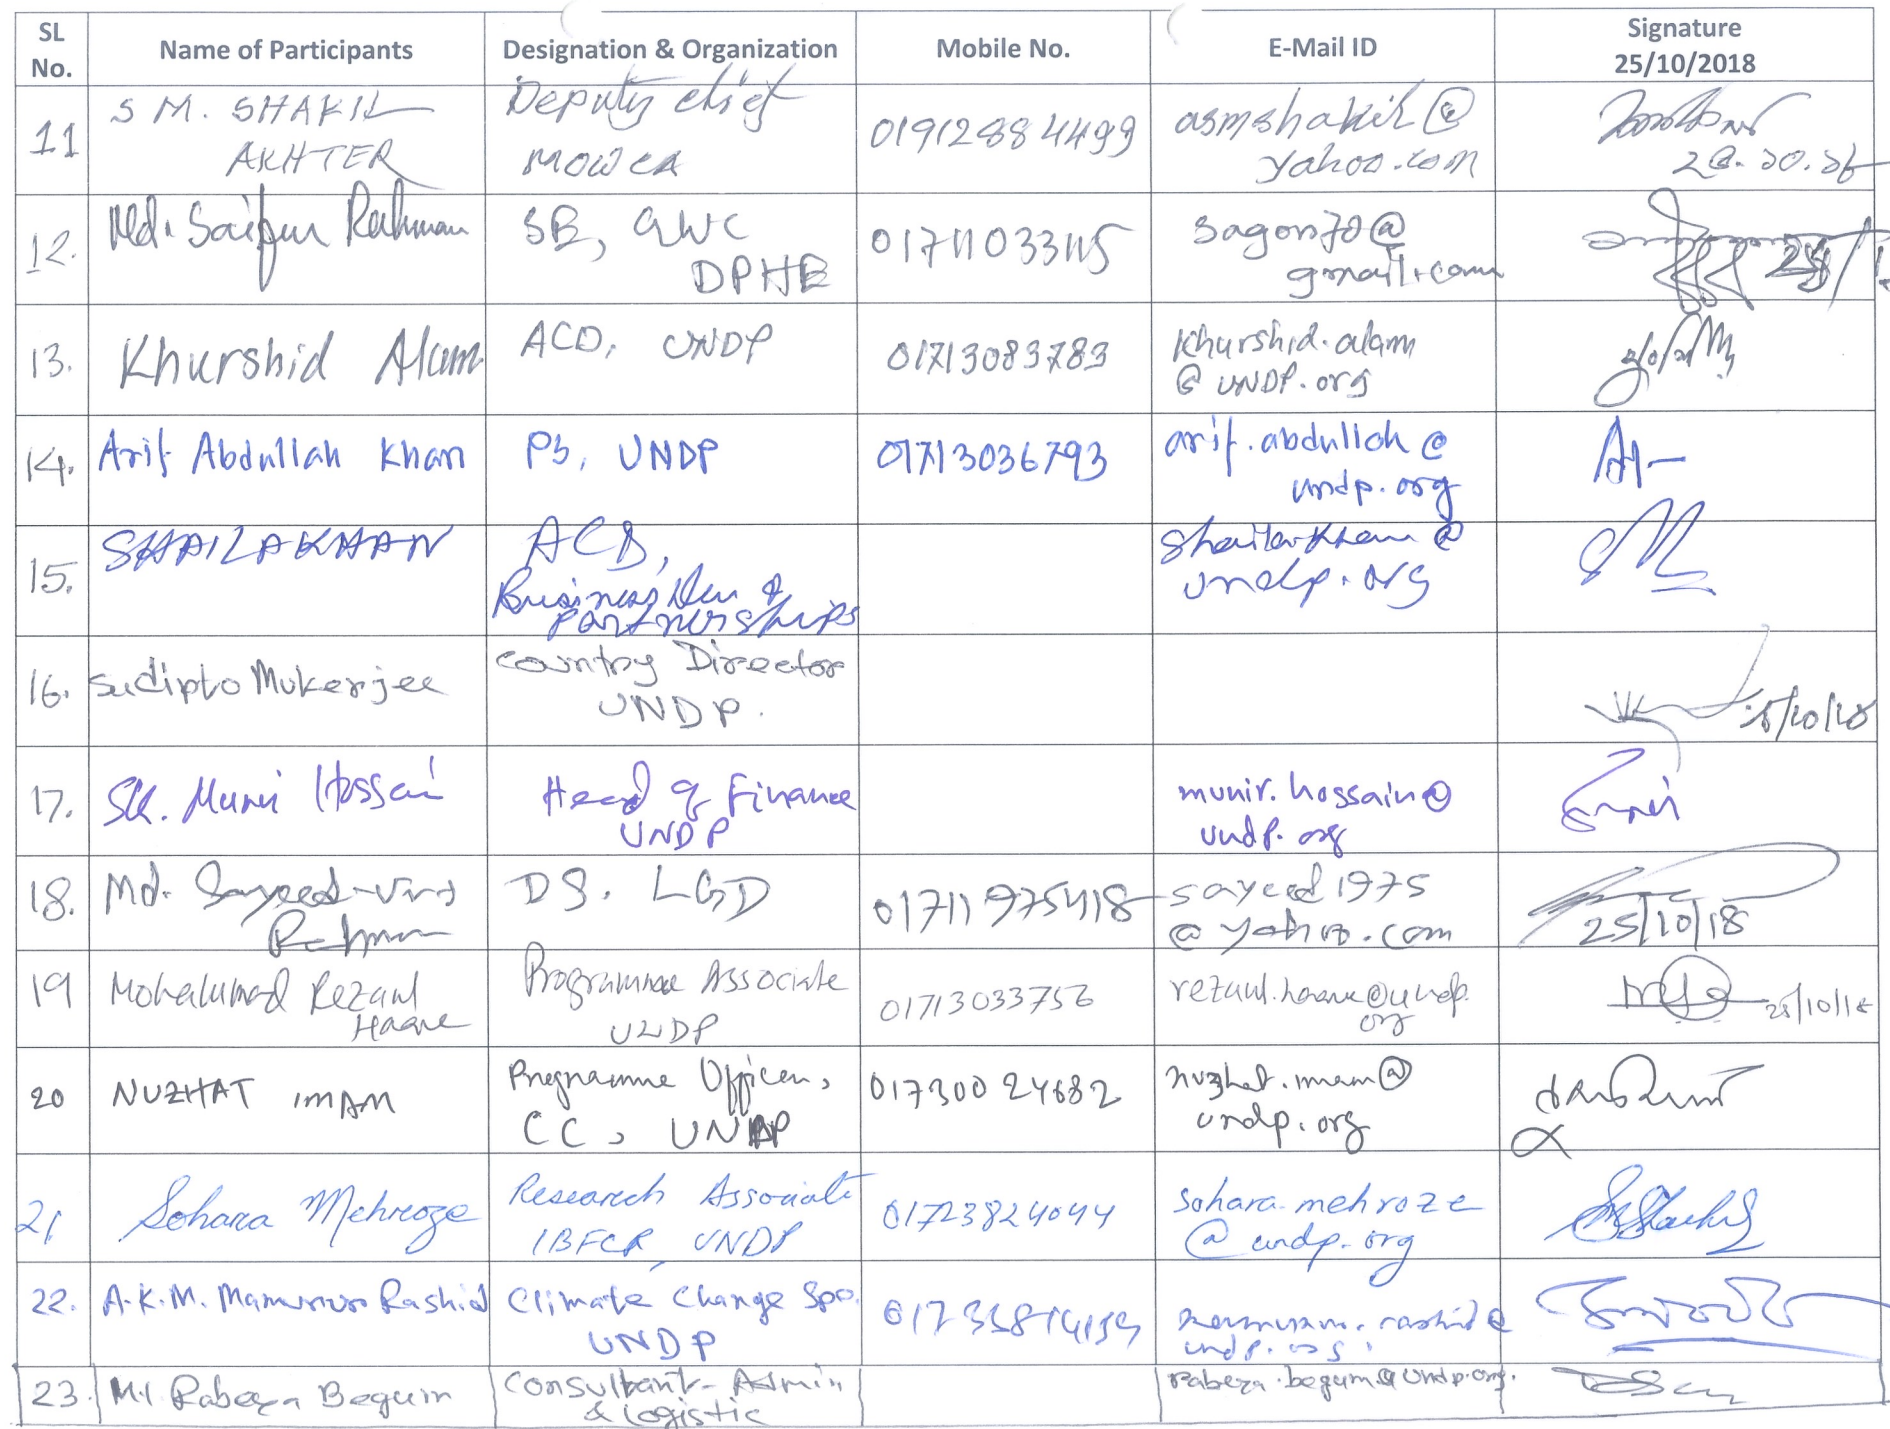 SL No. Name of Participants Designation & Organization Mobile No. E-Mail ID Signature 25/10/2018
11 S M. SHAKIL AKHTER Deputy chief MOWCA 01912884499 asmshakil@ yahoo.com
12. Md. Saifur Rahman SE, GWC DPHE 01711033115 sagon70@ gmail.com
13. Khurshid Alam ACD, UNDP 01713083783 Khurshid.alam @ UNDP.org
14. Arif Abdullah Khan PS, UNDP 01713036793 arif.abdullah @ undp.org
15. SHAILA KHAN ACD, Business Dev & Partnerships Shaila.Khan @ undp.org
16. Sudipto Mukerjee Country Director UNDP.
17. SK. Munir Hossain Head of Finance UNDP munir.hossain@ undp.org
18. Md. Sayeed-Ur- Rahman DS, LGD 01711975418 sayeed1975 @ yahoo.com 25/10/18
19 Mohammad Rezaul Haque Programme Associate UNDP 01713033756 rezaul.haque@undp. org 25/10/18
20 NUZHAT IMAM Programme Officer, CC, UNDP 01730024682 nuzhat.imam@ undp.org
21 Sohara Mehroze Research Associate IBFCR UNDP 01723824044 sohara.mehroze @undp.org
22. A.K.M. Mamunur Rashid Climate Change Spe. UNDP mamunur.rashid@ undp.org
23. Rabeya Begum Consultant-Admin & Logistic rabeya.begum@undp.org.